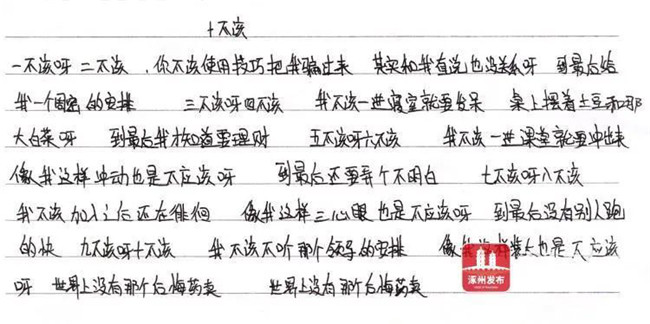 十不该
一不该呀 二不该 、你不该使用技巧把我骗过来 其实和我直说也没关系呀 到最后给
我一个圆富的安排 三不该呀四不该 我不该一进寝室就要发呆 桌上摆着土豆和那
大白菜呀 到最后我才知道要理财 五不该呀六不该 我不该一进课堂就要冲出来
像我这样冲动也是不应该呀 到最后还要弄个不明白 七不该呀八不该
我不该加入之后还在徘徊 像我这样三心眼也是不应该呀 到最后没有别人跑
的快 九不该呀十不该 我不该不听那个领导的安排 像我这样 也是不应该
呀 世界上没有那个后悔药卖 世界上没有那个后悔药卖
涿州发布